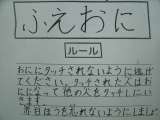 ふえおに
ルール
おににタッチされないように逃げ
てください。タッチされた人はお
にになって他の人をタッチしにい
きます。